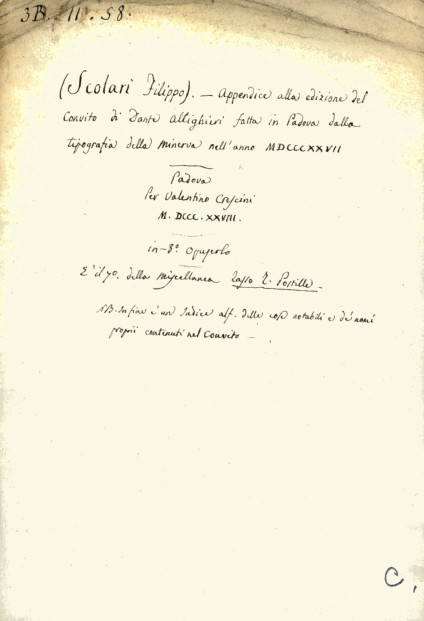 3B. 11. 58.
(Scolari Filippo). — Appendice alla edizione del
Convito di Dante Allighieri fatta in Padova dalla
tipografia della Minerva nell'anno MDCCCXXVII
Padova
Per Valentino Crescini
M. DCCC. XXVIII.
in-8.º Opuscolo
È il 7.º della miscellanea Tasso T. Postille.
NB. In fine è un Indice alf. delle cose notabili e de' nomi
proprii contenuti nel Convito —
C,